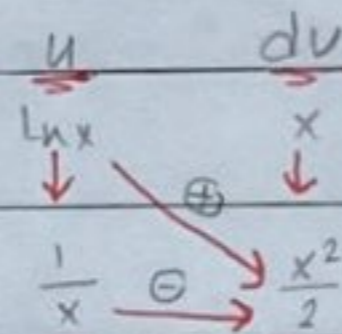 u dv
Ln x x
⊕
1/x ⊖ x²/2